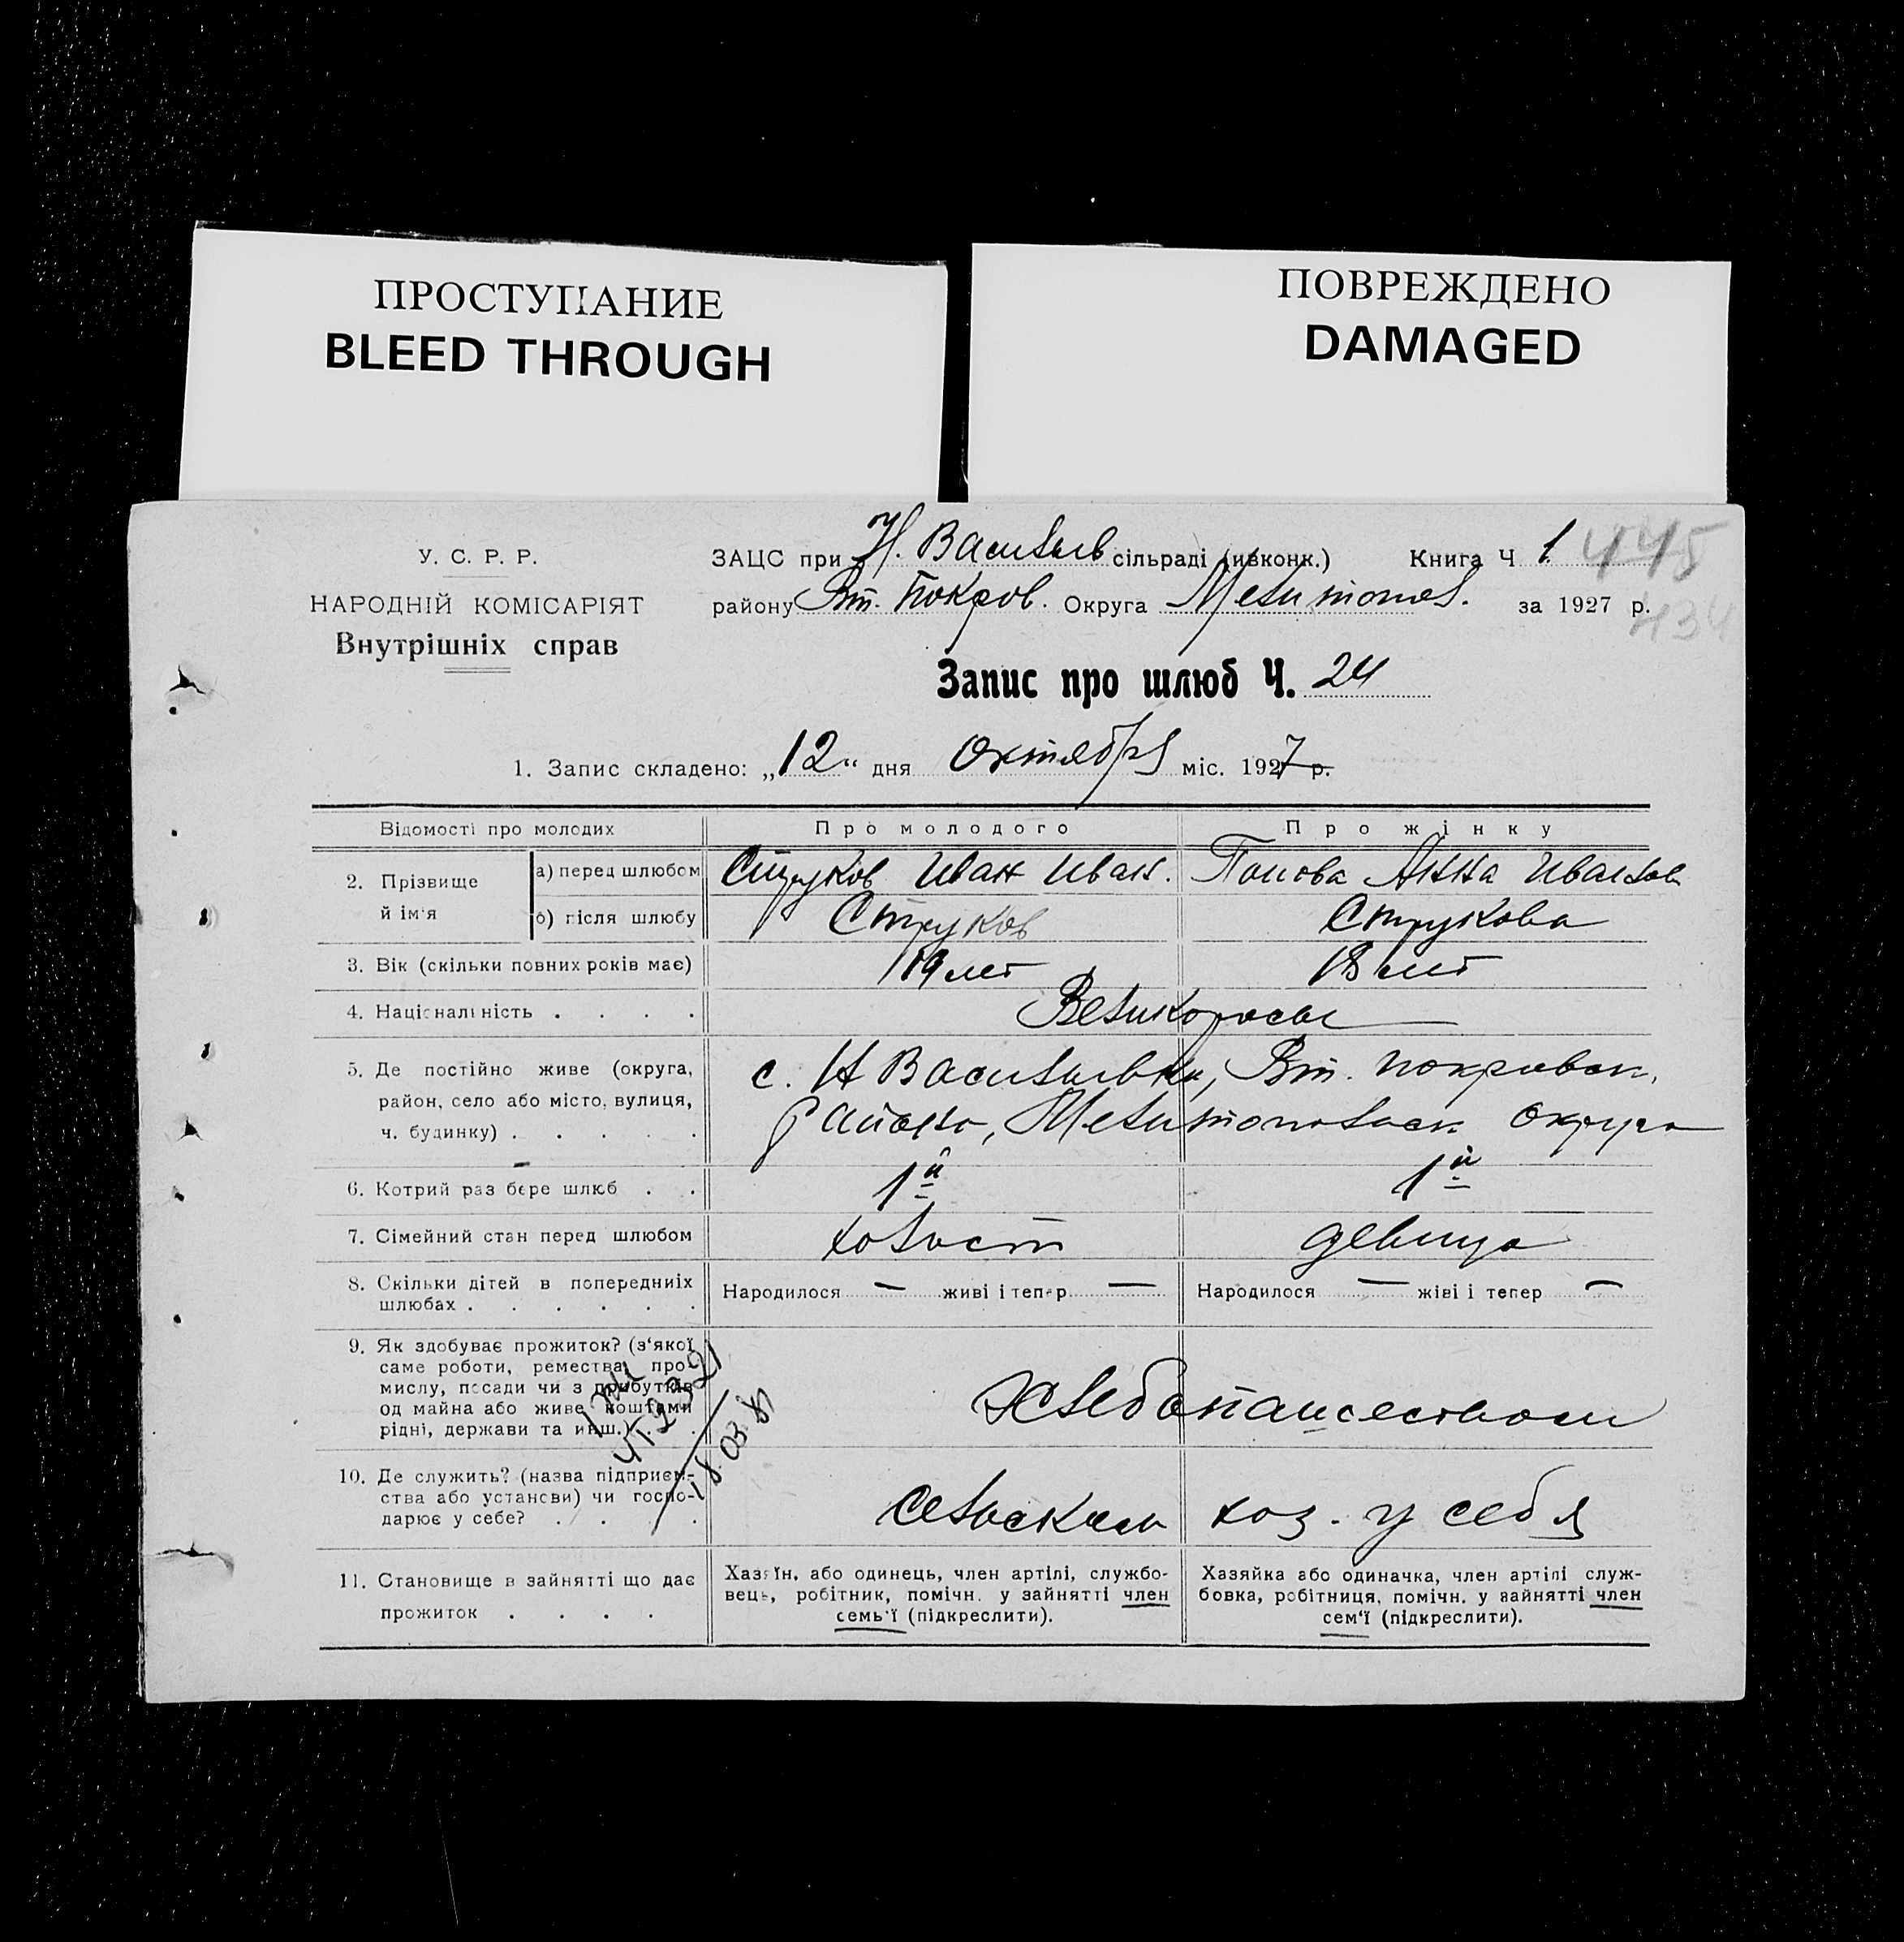 ПРОСТУПАНИЕ
BLEED THROUGH
ПОВРЕЖДЕНО
DAMAGED
У. С. Р. Р.
НАРОДНІЙ КОМІСАРІЯТ
Внутрішніх справ
ЗАЦС при Н. Васильев сільраді (ивконк.) Книга Ч 1. 445
району Вт. Покров. Округа Мелитопол. за 1927 р.
434
Запис про шлюб Ч. 24
1. Запис складено: „12“ дня Октября міс. 1927 р.
Відомості про молодих Про молодого Про жінку
2. Прізвище й ім'я а) перед шлюбом Струков Иван Иван. Попова Анна Иванов
б) після шлюбу Струков Струкова
3. Вік (скільки повних років має) 19 лет 18 лет
4. Національність . . . . Великороссы
5. Де постійно живе (округа, с. Н Васильевки, Вт. Покровск.
район, село або місто, вулиця, района, Мелитопольск. округа
ч. будинку) . . . . .
6. Котрий раз бере шлюб . . 1й 1й
7. Сімейний стан перед шлюбом холост девица
8. Скільки дітей в попередниіх Народилося — живі і тепер — Народилося — жіві і тепер —
шлюбах . . . . . .
9. Як здобуває прожиток? (з'якої
саме роботи, ремества, про-
мислу, посади чи з прибутків
од майна або живе коштами Хлебопашеством
рідні, держави та инш.) . .
18.03.
10. Де служить? (назва підприєм-
ства або установи) чи госпо- Сельским хоз. у себя
дарює у себе? . . . .
11. Становище в зайнятті що дає
прожиток . . . .
Хазяїн, або одинець, член артілі, службо-
вець, робітник, помічн. у зайнятті член
семь'ї (підкреслити).
Хазяйка або одиначка, член артілі служ-
бовка, робітниця, помічн. у зайнятті член
сем'ї (підкреслити).